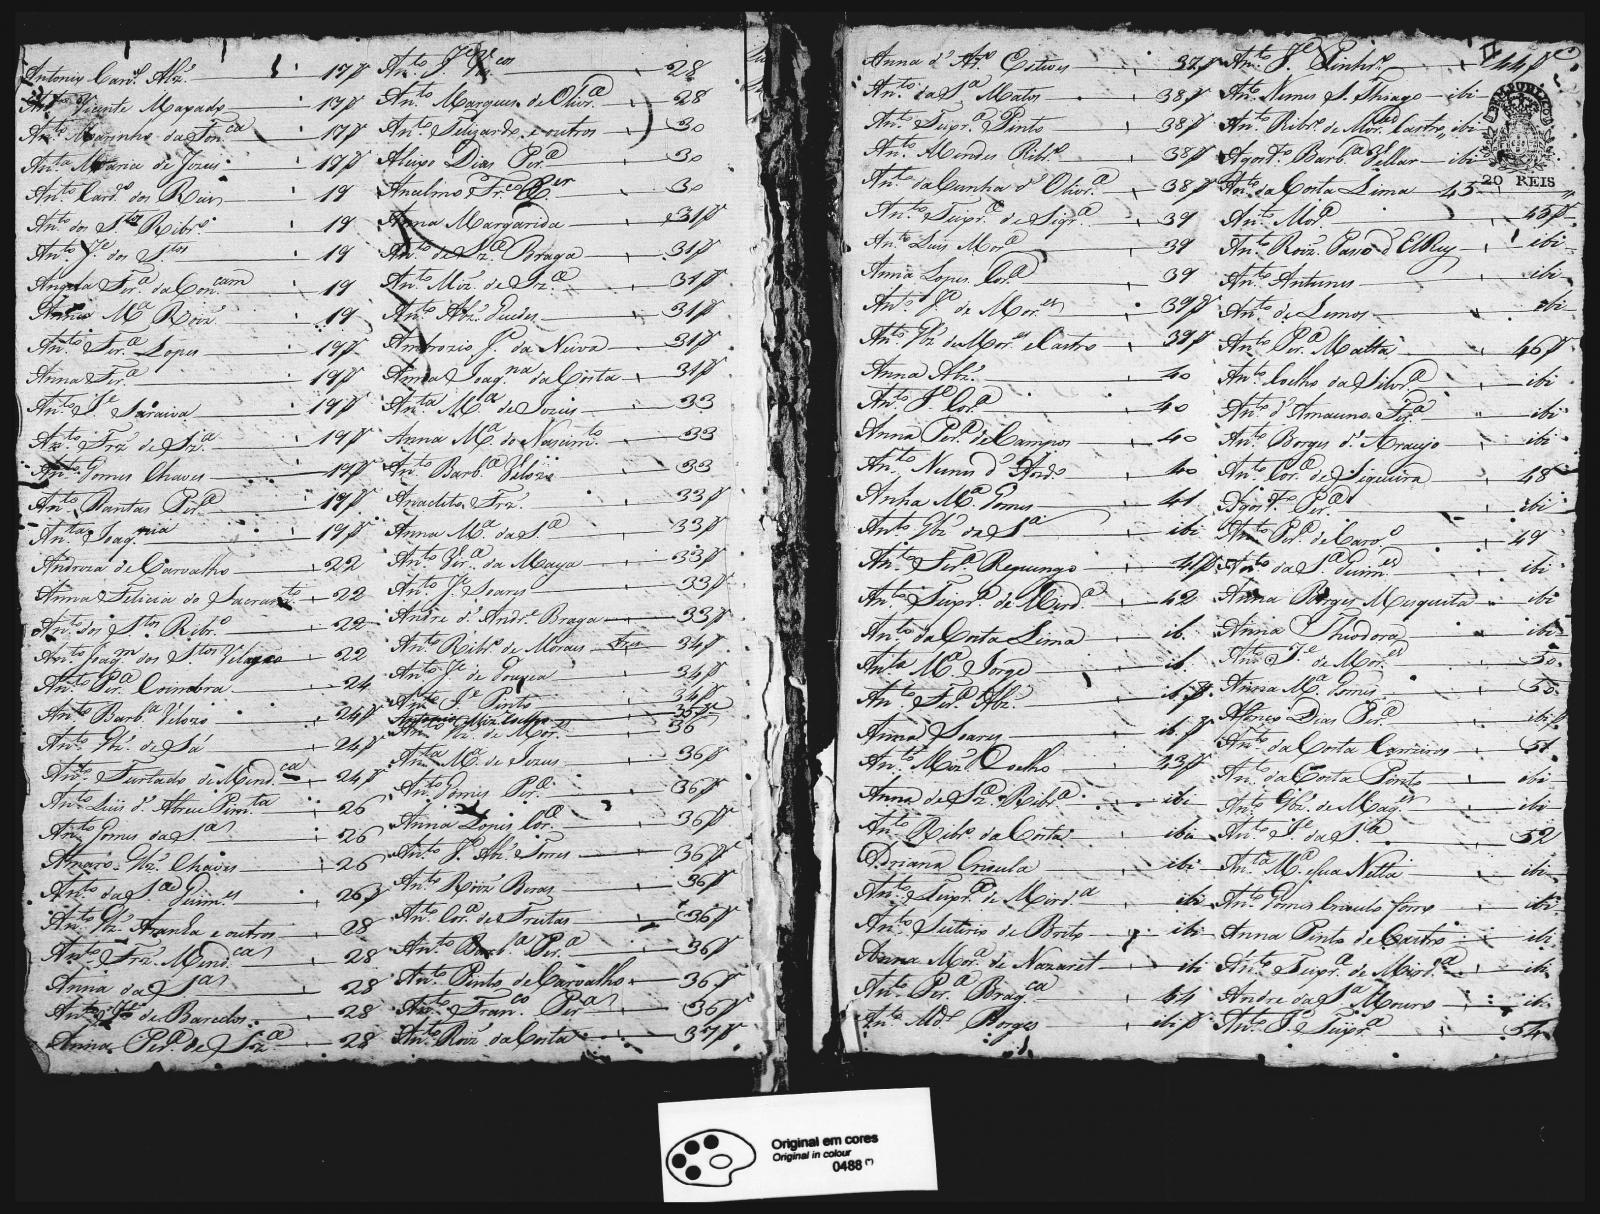 Antonio Card.l Alz.' 17 p
Vicente Maxado 17 p
An.to Marinho da Fon.ca 17 p
An.ta Maria de Jezus 17 p
An.to Card.o dos Reis 19
An.to dos S.tos Ribr.o 19
An.to J.e dos S.tos 19
Angela Fer.a da Con.cam 19
M.a Roiz' 19
An.to Fer.a Lopes 19 p
Anna Fer.a 19 p
An.to J.e Saraiva 19 p
An.to Frz' de Sz.a 19 p
An.to Gomes Chaves 19 p
An.to Dantas Per.a 19 p
An.ta Joaq. 19 p
Andreza de Carvalho 22
Anna Felicia do Sacram.to 22
An.to dos S.tos Ribr.o 22
An.to Joaq.m dos S.tos 22
An.to Per.a Coimbra 24
An.to Barb.a Velozo 24 p
An.to Glz.' de Sá 24 p
An.to Furtado de Mend.ca 24 p
An.to Luis d' Abreu Pim.ta 26
An.to Gomes da S.a 26
Amaro Glz.' Chaves 26
An.to da S.a Guim.es 26 p
An.to Glz.' Aranha e outros 28
An.to Frz.' Mend.ca 28
Anna da S.a 28
An.to de Barcelos 28
Anna Per.a de Sz.a 28
An.to J.e V.cos 28
An.to Marques de Olivr.a 28
An.to Felizardo e outros 30
Aleixo Dias Per.a 30
Anselmo Fr.co X.er 30
Anna Margarida 31 p
An.to de Sz.a Braga 31 p
An.to Miz.' de Sz.a 31 p
An.to Alz.' Guedes 31 p
Ambrozio J.e da Neiva 31 p
Anna Joaq.na da Costa 31 p
An.ta M.a de Jezus 33
Anna M.a do Nascim.to 33
An.to Barb.a Velozo 33
Anacleto Frz.' 33 p
Anna M.a da S.a 33 p
An.to Vier.a da Maya 33 p
An.to J.e Soares 33 p
Andre d' Andr.e Braga 33 p
An.to Ribr.o de Moraes 34 p
An.to J.e de Gouvea 34 p
An.to J.e Pinto 34 p
Antonio Miz. Coelho
An.to Glz.' de Mor.es 36
An.ta M.a de Jezus 36 p
An.to Gomes Per.a 36 p
Anna Lopes Cor.a 36 p
An.to J.e Alz.' Torres 36 p
An.to Roiz' 36 p
An.to Cor.a de Freitas 36 p
An.to Barb.a Per.a 36 p
An.to Pinto de Carvalho 36 p
An.to Fran.co Per.a 36 p
An.to Roiz' da Costa 37 p
Anna d' Esteves 37 p
An.to da S.a Matos 38 p
An.to Teixr.a Pinto 38 p
An.to Mendes Ribr.o 38 p
An.to da Cunha d' Olivr.a 38 p
An.to Teixr.a de Siqr.a 39
An.to Luis Mor.a 39
Anna Lopes Cor.a 39
An.to J.e de Mor.es 39 p
An.to Glz.' de Mor.es e Castro 39 p
Anna Alz.' 40
An.to J.e Cor.a 40
Anna Per.a de Campos 40
An.to Nunes d' 40
Anna M.a Gomes 41
An.to Glz' da S.a ibi
An.to Fer.a Reguengo 41 p
An.to Teixr.a de Mend.ca 42
An.to da Costa Lima ib.
An.ta M.a Jorge ib.
An.to Fer.a Alz.' ib. p
Anna Soares ib. p
An.to Miz.' Coelho 43 p
Anna de Sz.a Ribr.a ibi
An.to Ribr.o da Costa ibi
Adriana Crioula ibi
An.to Teixr.a de Mird.a ibi
An.to Leiterio de Brito ibi
Anna Mor.a de Nazaret ibi
An.to Per.a Brag.ca 44
An.to M.el Borges ibi p
An.to J.e Pinhr.o 44 p
An.to Nunes S. Thiago ibi
An.to Ribr.o de Castro ibi
Agost.o Barb.a Vellar ibi
An.to da Costa Lima 45
An.to Mor.a 45 p
An.to Roiz' Passo d' El Rey ibi
An.to Antunes ibi
An.to de Lemos ibi
An.to Per.a Matta 46 p
An.to Coelho da Silvr.a ibi
An.to d' ibi
An.to Borges d' Araujo ibi
An.to Cor.a de Siqueira 48
Agost.o Per.a ibi
An.to Per.a de Carv.o 49
An.to da S.a Guim.es ibi
Anna Borges Mesquita ibi
Anna Thiodora ibi
An.to J.e de Mor.es 50
Anna M.a Gomes 50
Afonço Dias Per.a ibi p
An.to da Costa Carneiro 51
An.to da Costa Pinto ibi
An.to Glz.' de Mag.es ibi
An.to J.e da S.a 52
An.ta M.a e sua Netta ibi
An.to Gomes Crioulo forro ibi
Anna Pinto de Castro ibi
An.to Teixr.a de Mird.a ibi
Andre da S.a Mouro ibi
An.to J.e Teixr.a 54
20 REIS
Original em cores
Original in colour
0488 (*)